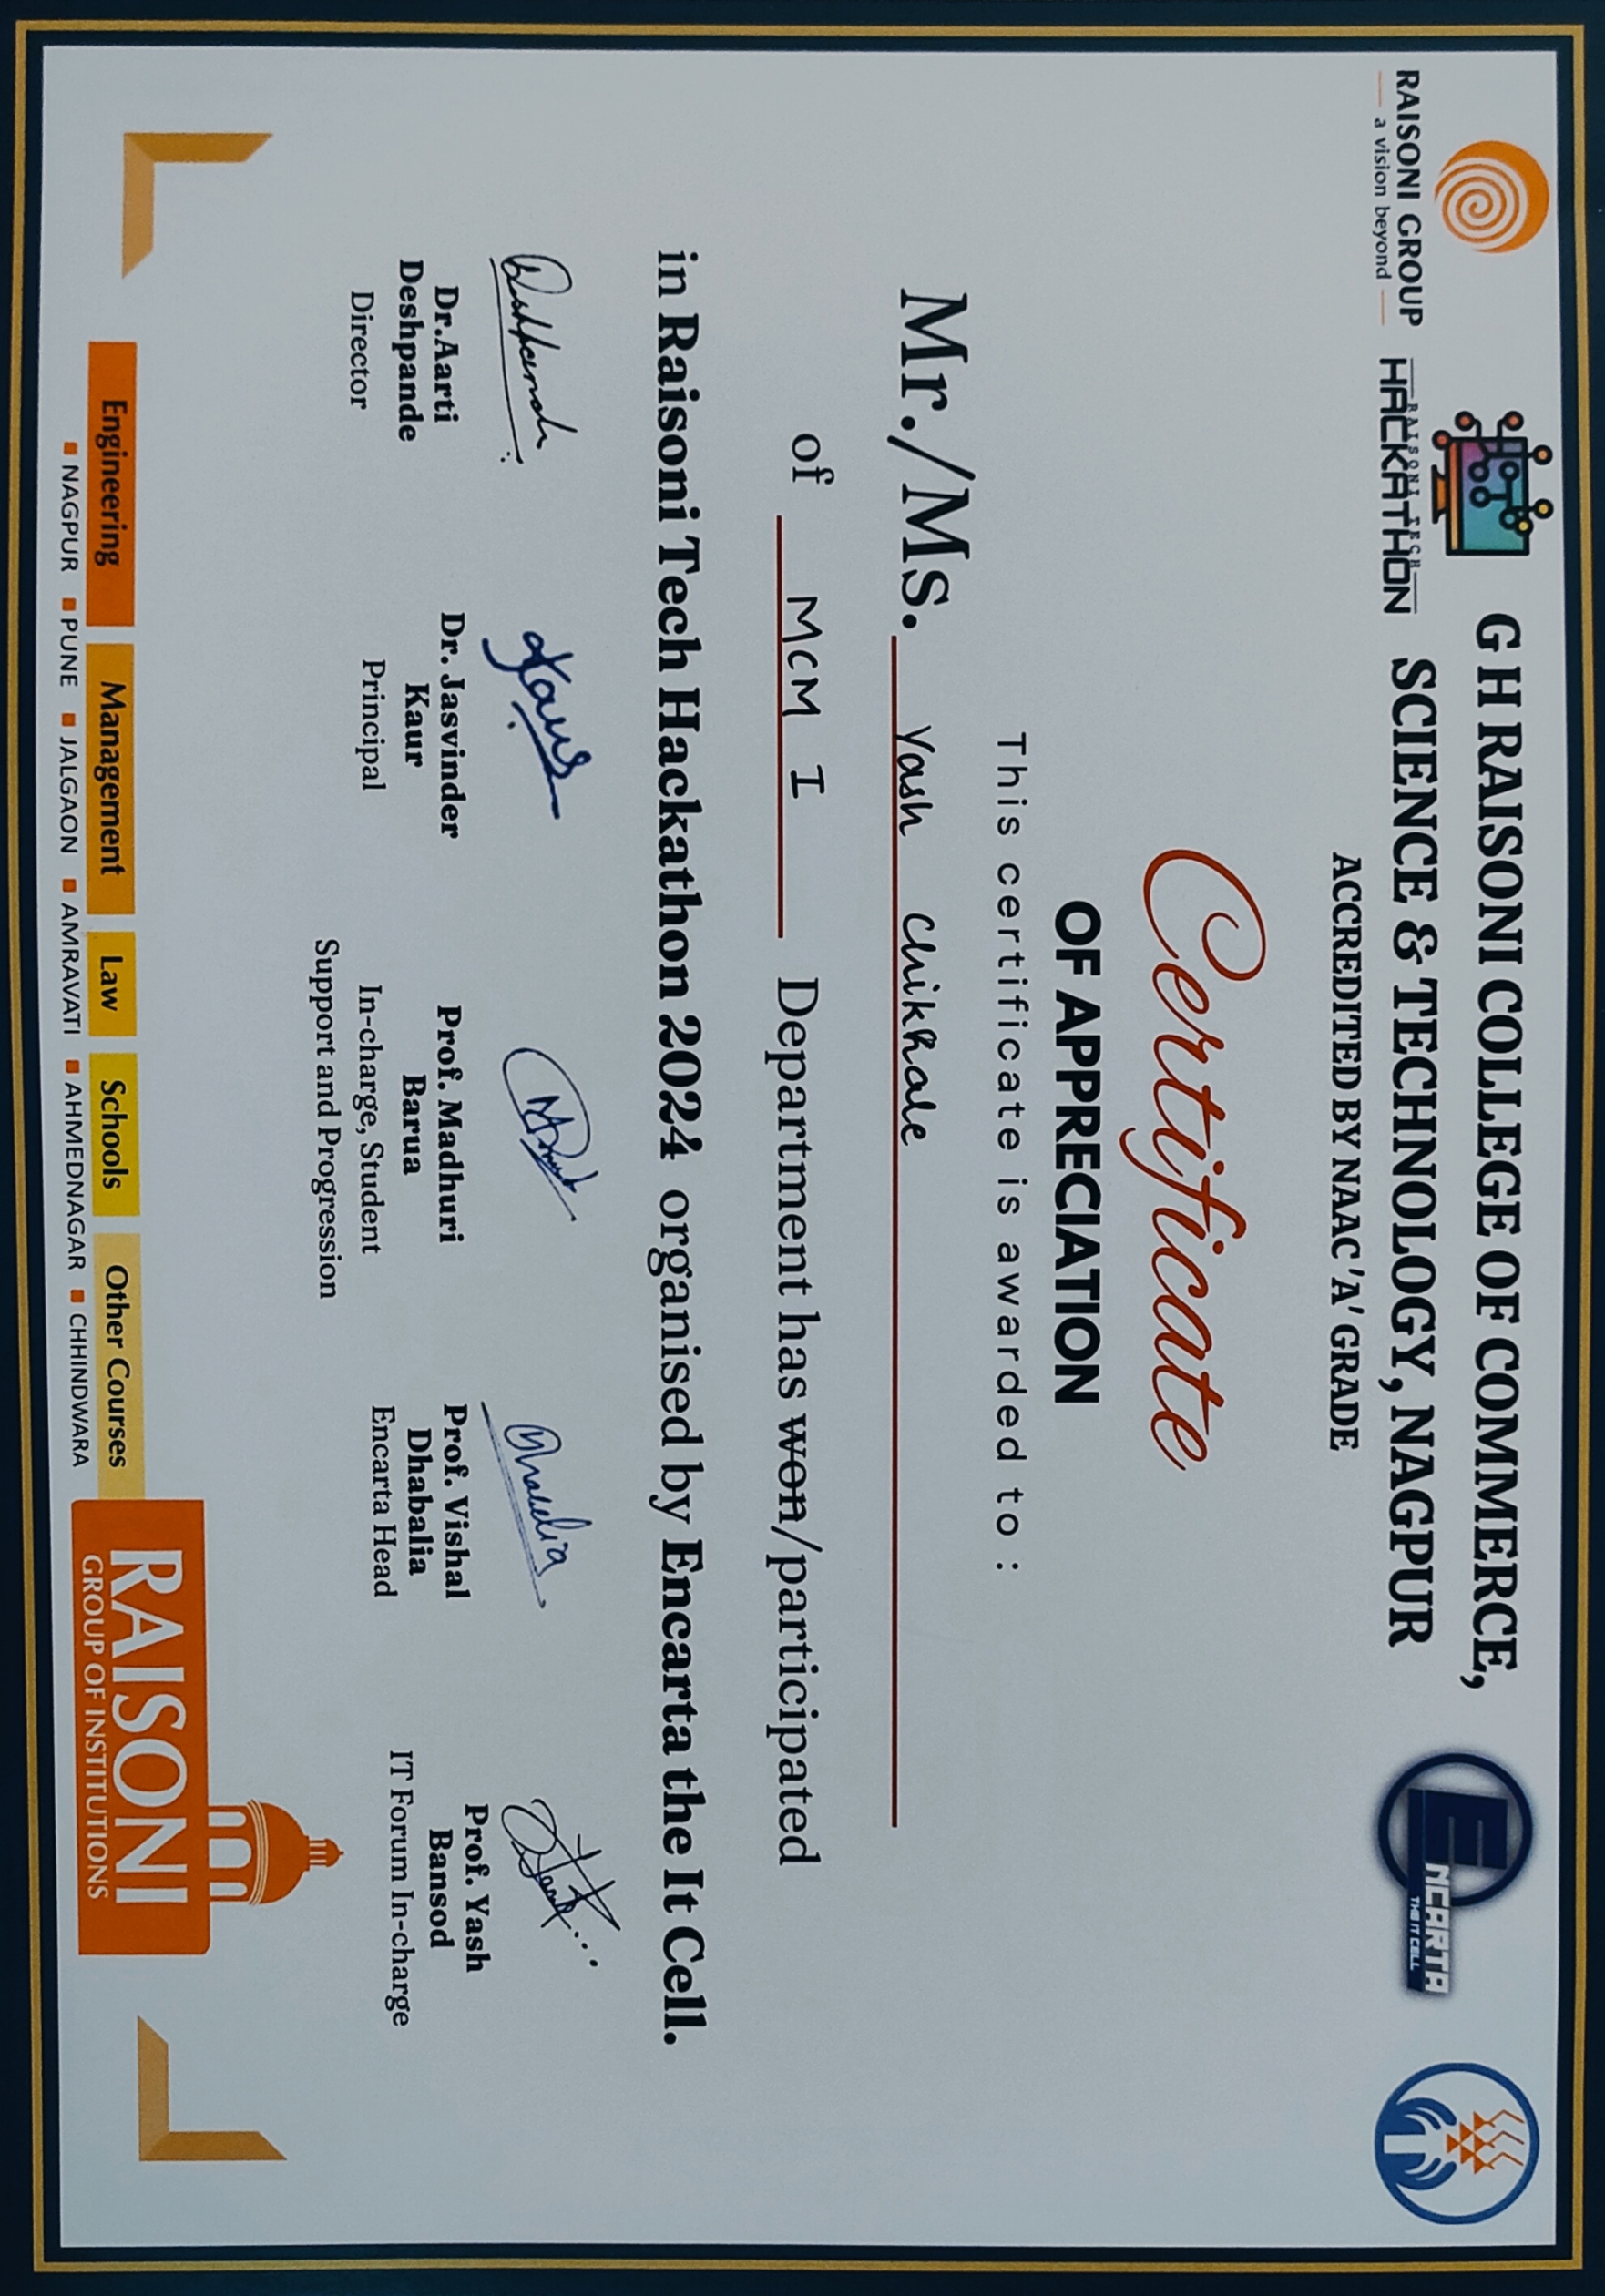 RAISONI GROUP
a vision beyond
RAISONI TECH
HACKATHON
G H RAISONI COLLEGE OF COMMERCE,
SCIENCE & TECHNOLOGY, NAGPUR
ACCREDITED BY NAAC 'A' GRADE
ENCARTA
THE IT CELL
Certificate
OF APPRECIATION
This certificate is awarded to :
Mr./Ms. Yash Chikhale
of MCM I Department has won/participated
in Raisoni Tech Hackathon 2024 organised by Encarta the It Cell.
Dr.Aarti
Deshpande
Director
Dr. Jasvinder
Kaur
Principal
Prof. Madhuri
Barua
In-charge, Student
Support and Progression
Prof. Vishal
Dhabalia
Encarta Head
Prof. Yash
Bansod
IT Forum In-charge
Engineering Management Law Schools Other Courses
NAGPUR PUNE JALGAON AMRAVATI AHMEDNAGAR CHHINDWARA
RAISONI
GROUP OF INSTITUTIONS